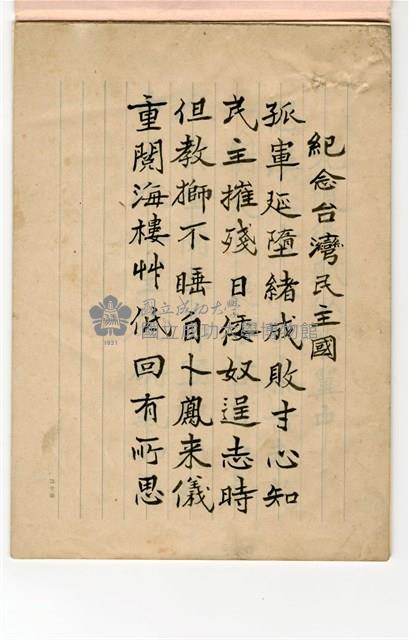 紀念台灣民主國
孤軍延墮緒成敗寸心知
民主摧殘日倭奴逞志時
但教獅不睡自卜鳳来儀
重閱海樓艸低回有所思
國立成功大學
國立成功大學博物館
1931